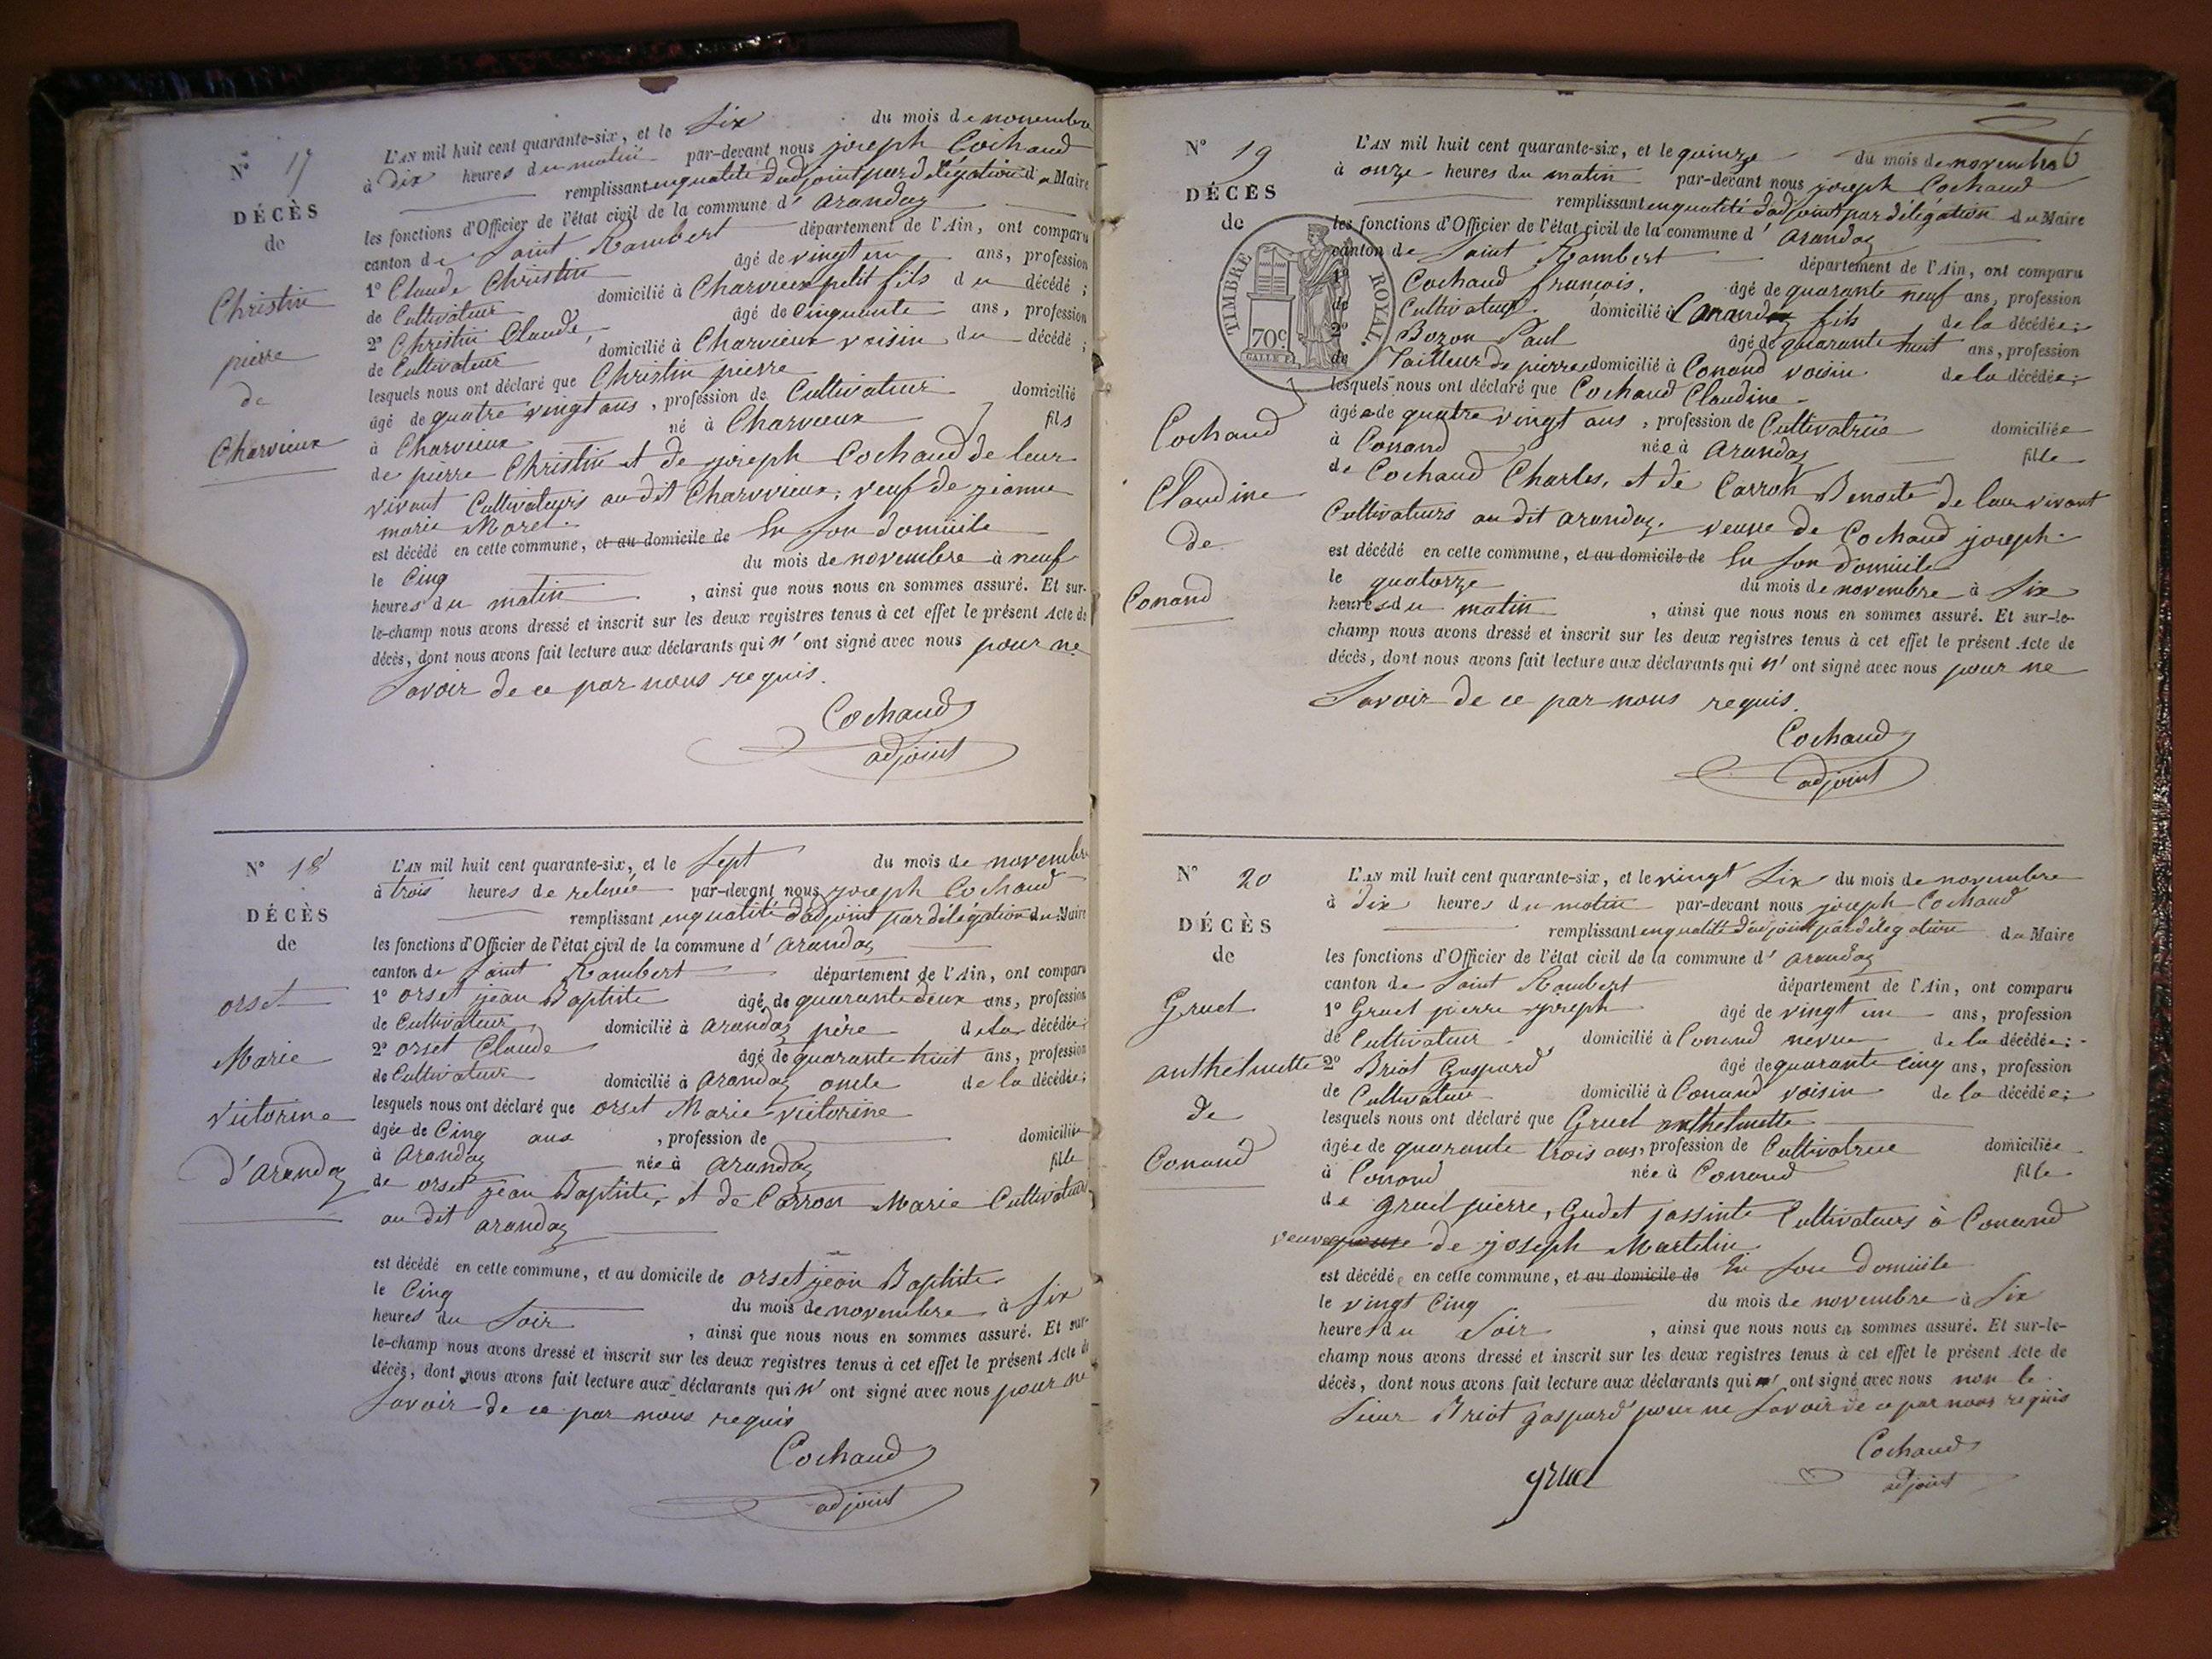 N° 17
DÉCÈS
de
Christin
pierre
de
Charvieux
L'AN mil huit cent quarante-six, et le six du mois de novembre
à dix heures du matin par-devant nous joseph Cochaud
remplissant en qualité d'adjoint par délégation du Maire
les fonctions d'Officier de l'état civil de la commune d' arandaz
canton de Saint Rambert département de l'Ain, ont comparu
1° Claude Christin âgé de vingt un ans, profession
de Cultivateur domicilié à Charvieux petit fils du décédé ;
2° Christin Claude, âgé de Cinquante ans, profession
de Cultivateur domicilié à Charvieux voisin du décédé ;
lesquels nous ont déclaré que Christin pierre
âgé de quatre vingt ans, profession de Cultivateur domicilié
à Charvieux né à Charvieux fils
de pierre Christin et de joseph Cochaud de leur
vivant Cultivateurs au dit Charvieux, veuf de jeanne
marie Morel.
est décédé en cette commune, et au domicile de En son domicile
le Cinq du mois de novembre à neuf
heures du matin, ainsi que nous nous en sommes assuré. Et sur-
le-champ nous avons dressé et inscrit sur les deux registres tenus à cet effet le présent Acte de
décès, dont nous avons fait lecture aux déclarants qui n' ont signé avec nous pour ne
Savoir de ce par nous requis.
Cochaud
adjoint
N° 18
DÉCÈS
de
orset
Marie
victorine
d'arandaz
L'AN mil huit cent quarante-six, et le Sept du mois de novembre
à trois heures de relevée par-devant nous joseph Cochaud
remplissant en qualité d'adjoint par délégation du Maire
les fonctions d'Officier de l'état civil de la commune d' arandaz
canton de Saint Rambert département de l'Ain, ont comparu
1° orset jean Baptiste âgé de quarante deux ans, profession
de Cultivateur domicilié à arandaz père de la décédée;
2° orset Claude âgé de quarante huit ans, profession
de Cultivateur domicilié à arandaz oncle de la décédée;
lesquels nous ont déclaré que orset Marie victorine
âgée de Cinq ans, profession de domiciliée
à arandaz née à arandaz fille
de orset jean Baptiste, et de Carron Marie Cultivateurs
au dit arandaz
est décédé en cette commune, et au domicile de orset jean Baptiste
le Cinq du mois de novembre à Six
heures du Soir, ainsi que nous nous en sommes assuré. Et sur-
le-champ nous avons dressé et inscrit sur les deux registres tenus à cet effet le présent Acte de
décès, dont nous avons fait lecture aux déclarants qui n' ont signé avec nous pour ne
Savoir de ce par nous requis
Cochaud
adjoint
N° 19
DÉCÈS
de
TIMBRE ROYAL
70c
Cochaud
Claudine
de
Conand
L'AN mil huit cent quarante-six, et le quinze du mois de novembre
à onze heures du matin par-devant nous joseph Cochaud
remplissant en qualité d'adjoint par délégation du Maire
les fonctions d'Officier de l'état civil de la commune d' arandaz
canton de Saint Rambert département de l'Ain, ont comparu
1° Cochaud françois. âgé de quarante neuf ans, profession
de Cultivateur domicilié à fils de la décédée;
2° Bozon Paul âgé de quarante huit ans, profession
de Tailleur de pierre domicilié à Conand voisin de la décédée;
lesquels nous ont déclaré que Cochaud Claudine
âgée de quatre vingt ans, profession de Cultivatrice domiciliée
à Conand née à arandaz fille
de Cochaud Charles, et de Carron Benoite de leur vivant
Cultivateurs au dit arandaz. veuve de Cochaud joseph.
est décédé en cette commune, et au domicile de En son domicile
le quatorze du mois de novembre à Six
heures du matin, ainsi que nous nous en sommes assuré. Et sur-le-
champ nous avons dressé et inscrit sur les deux registres tenus à cet effet le présent Acte de
décès, dont nous avons fait lecture aux déclarants qui n' ont signé avec nous pour ne
Savoir de ce par nous requis.
Cochaud
adjoint
N° 20
DÉCÈS
de
Gruel
anthelmette
de
Conand
L'AN mil huit cent quarante-six, et le vingt Six du mois de novembre
à dix heures du matin par-devant nous joseph Cochaud
remplissant en qualité d'adjoint par délégation du Maire
les fonctions d'Officier de l'état civil de la commune d' arandaz
canton de Saint Rambert département de l'Ain, ont comparu
1° Gruel pierre joseph âgé de vingt un ans, profession
de Cultivateur domicilié à Conand neveu de la décédée;
2° Briot Gaspard âgé de quarante cinq ans, profession
de Cultivateur domicilié à Conand voisin de la décédée;
lesquels nous ont déclaré que Gruel anthelmette
âgée de quarante trois ans, profession de Cultivatrice domiciliée
à Conand née à Conand fille
de gruel pierre, Gudet jassinte Cultivateurs à Conand
veuve de joseph Martelin
est décédé en cette commune, et au domicile de En son domicile
le vingt Cinq du mois de novembre à Six
heures du Soir, ainsi que nous nous en sommes assuré. Et sur-le-
champ nous avons dressé et inscrit sur les deux registres tenus à cet effet le présent Acte de
décès, dont nous avons fait lecture aux déclarants qui ont signé avec nous non le
Sieur Briot gaspard pour ne Savoir de ce par nous requis
gruel
Cochaud
adjoint